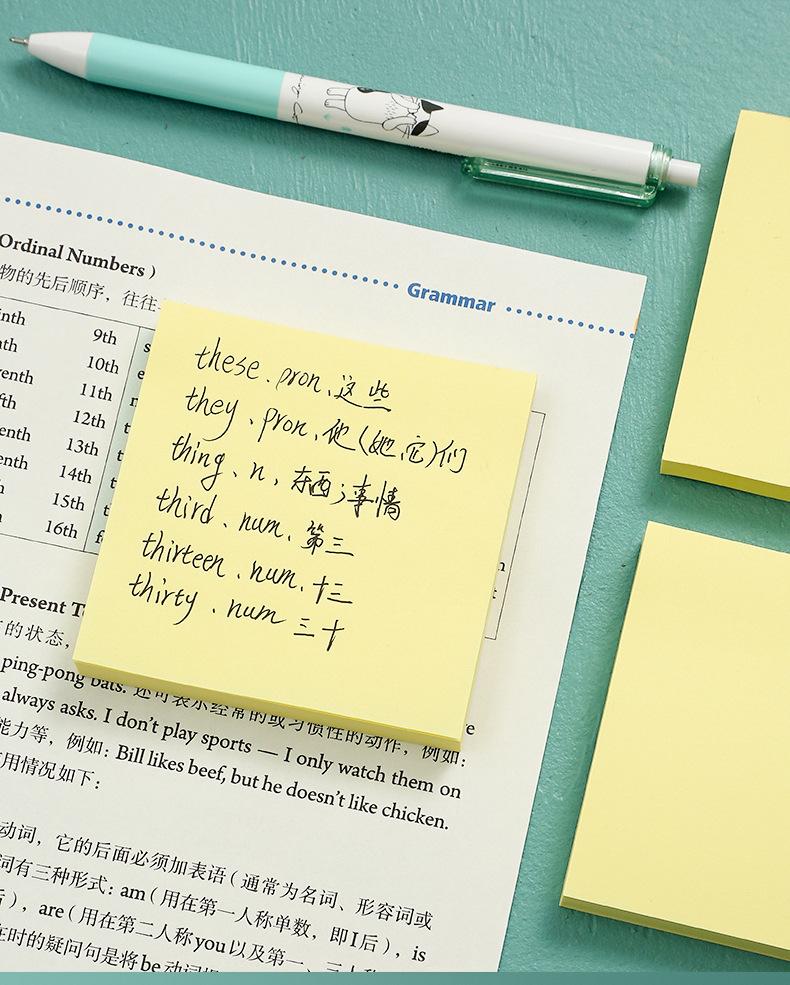 Grammar
Ordinal Numbers )
物的先后顺序，往往
inth 9th
10th
venth 11th
12th
13th
14th
15th
16th
these、pron、这些
they、pron、他(她、它)们
thing、n、东西；事情
third、num、第三
thirteen、num、十三
thirty、num 三十
Present T
的状态，
ping-pong bats. 还可表示经常的或习惯性的动作，例如：
always asks. I don't play sports — I only watch them on
能力等，例如: Bill likes beef, but he doesn't like chicken.
用情况如下：
动词，它的后面必须加表语(通常为名词、形容词或
词有三种形式: am(用在第一人称单数，即I后)，
后)，are(用在第二人称you以及第一、三人称
is
在时的疑问句是将be动词